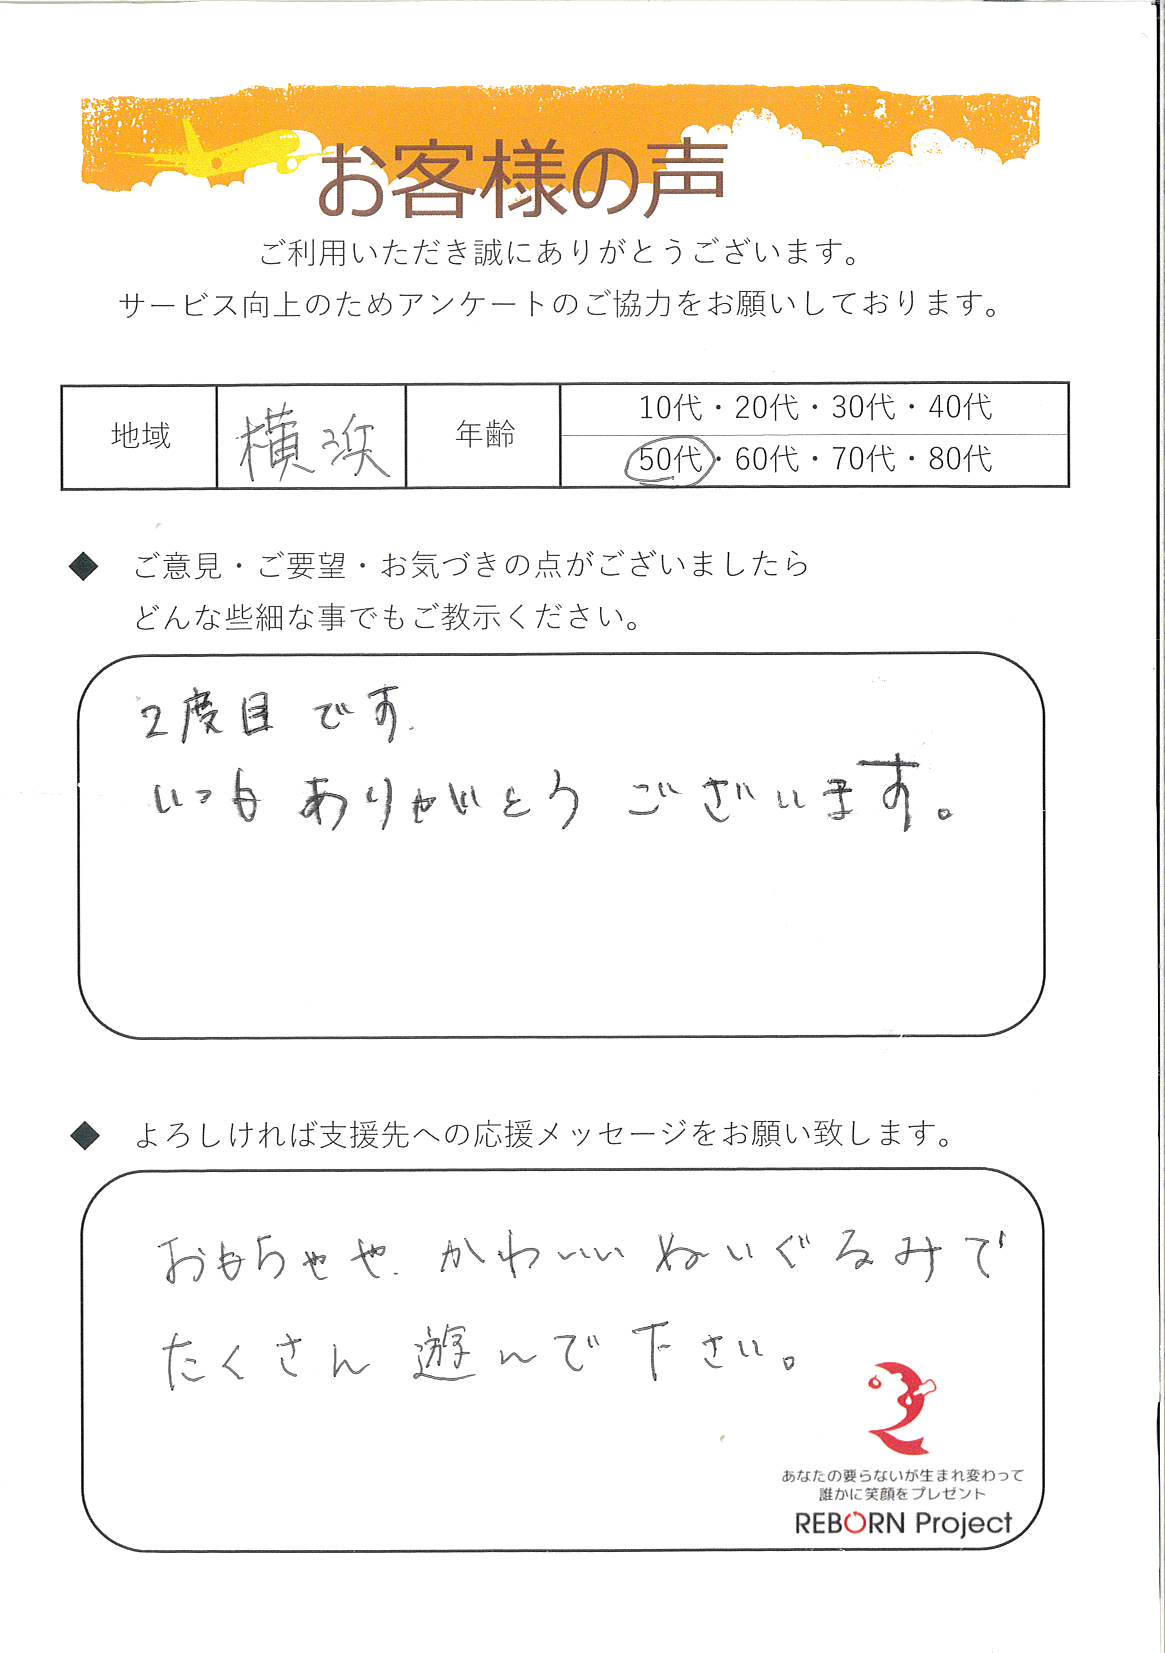 お客様の声
ご利用いただき誠にありがとうございます。
サービス向上のためアンケートのご協力をお願いしております。
地域 横浜 年齢 10代・20代・30代・40代
50代・60代・70代・80代
◆ ご意見・ご要望・お気づきの点がございましたら
どんな些細な事でもご教示ください。
2度目です.
いつもありがとうございます。
◆ よろしければ支援先への応援メッセージをお願い致します。
おもちゃや、かわいいぬいぐるみで
たくさん遊んで下さい。
あなたの要らないが生まれ変わって
誰かに笑顔をプレゼント
REBORN Project